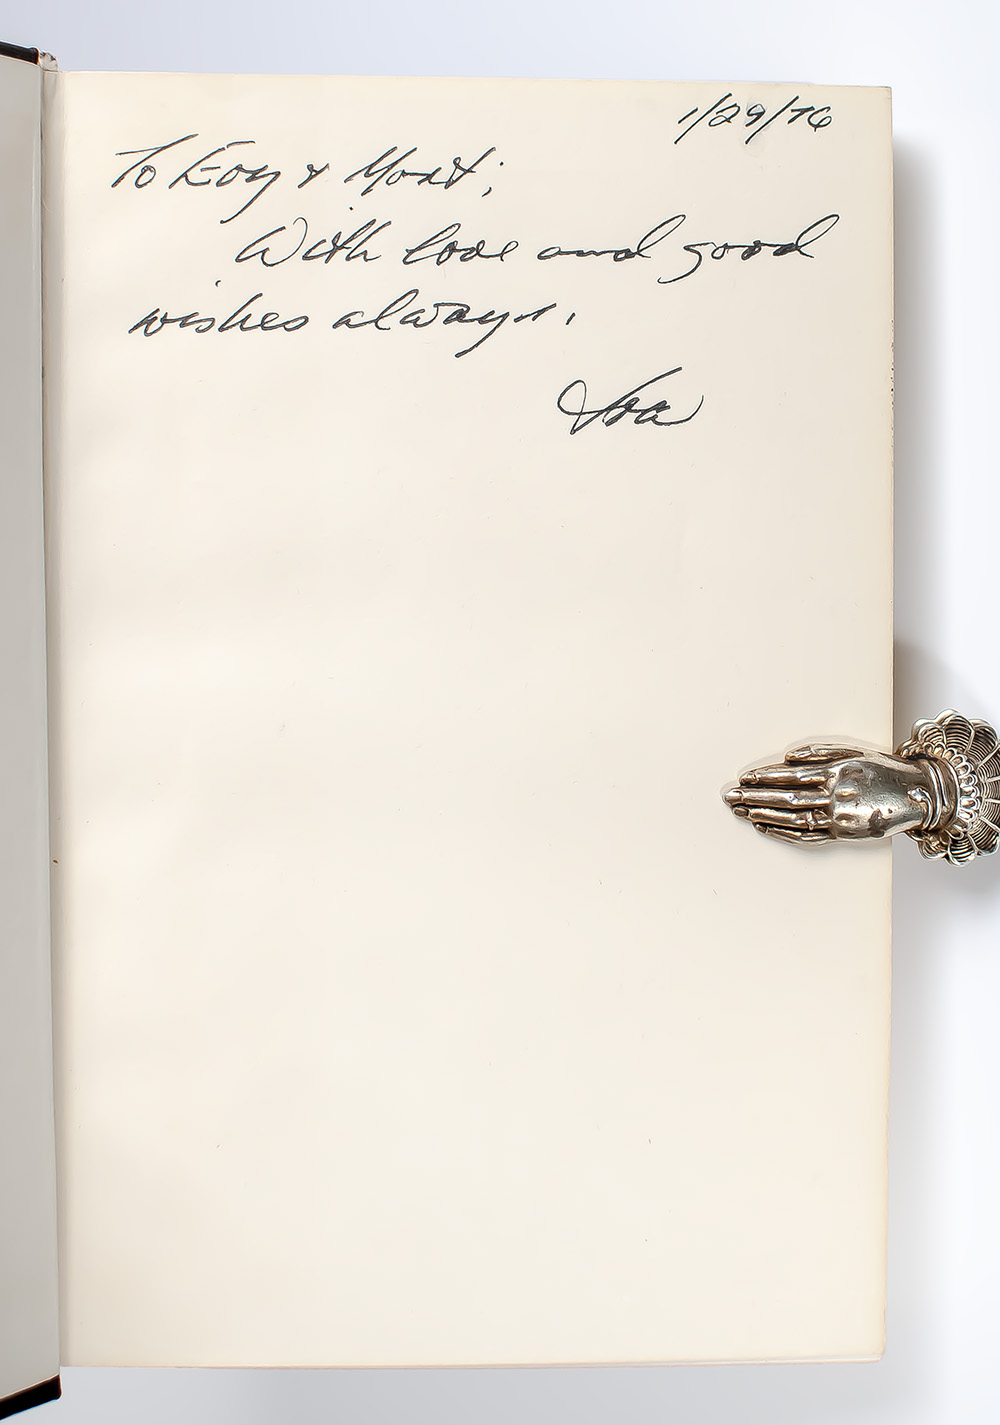 1/29/76
To Eoy & Mort;
With love and good
wishes always,
Ira